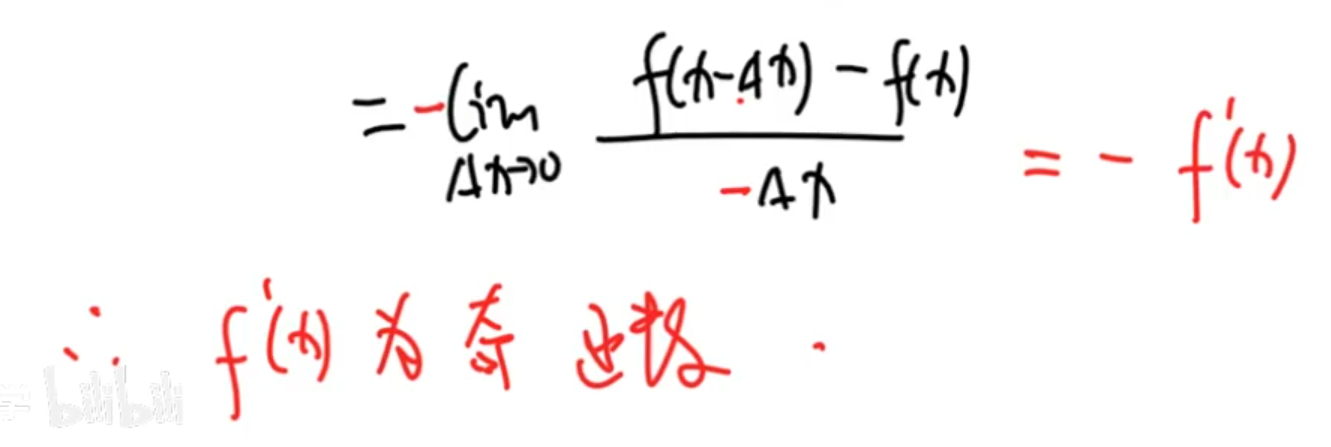 = -lim_{Δx→0} \frac{f(x-Δx) - f(x)}{-Δx} = -f'(x)
∴ f'(x) 为奇函数.
学 bilibili